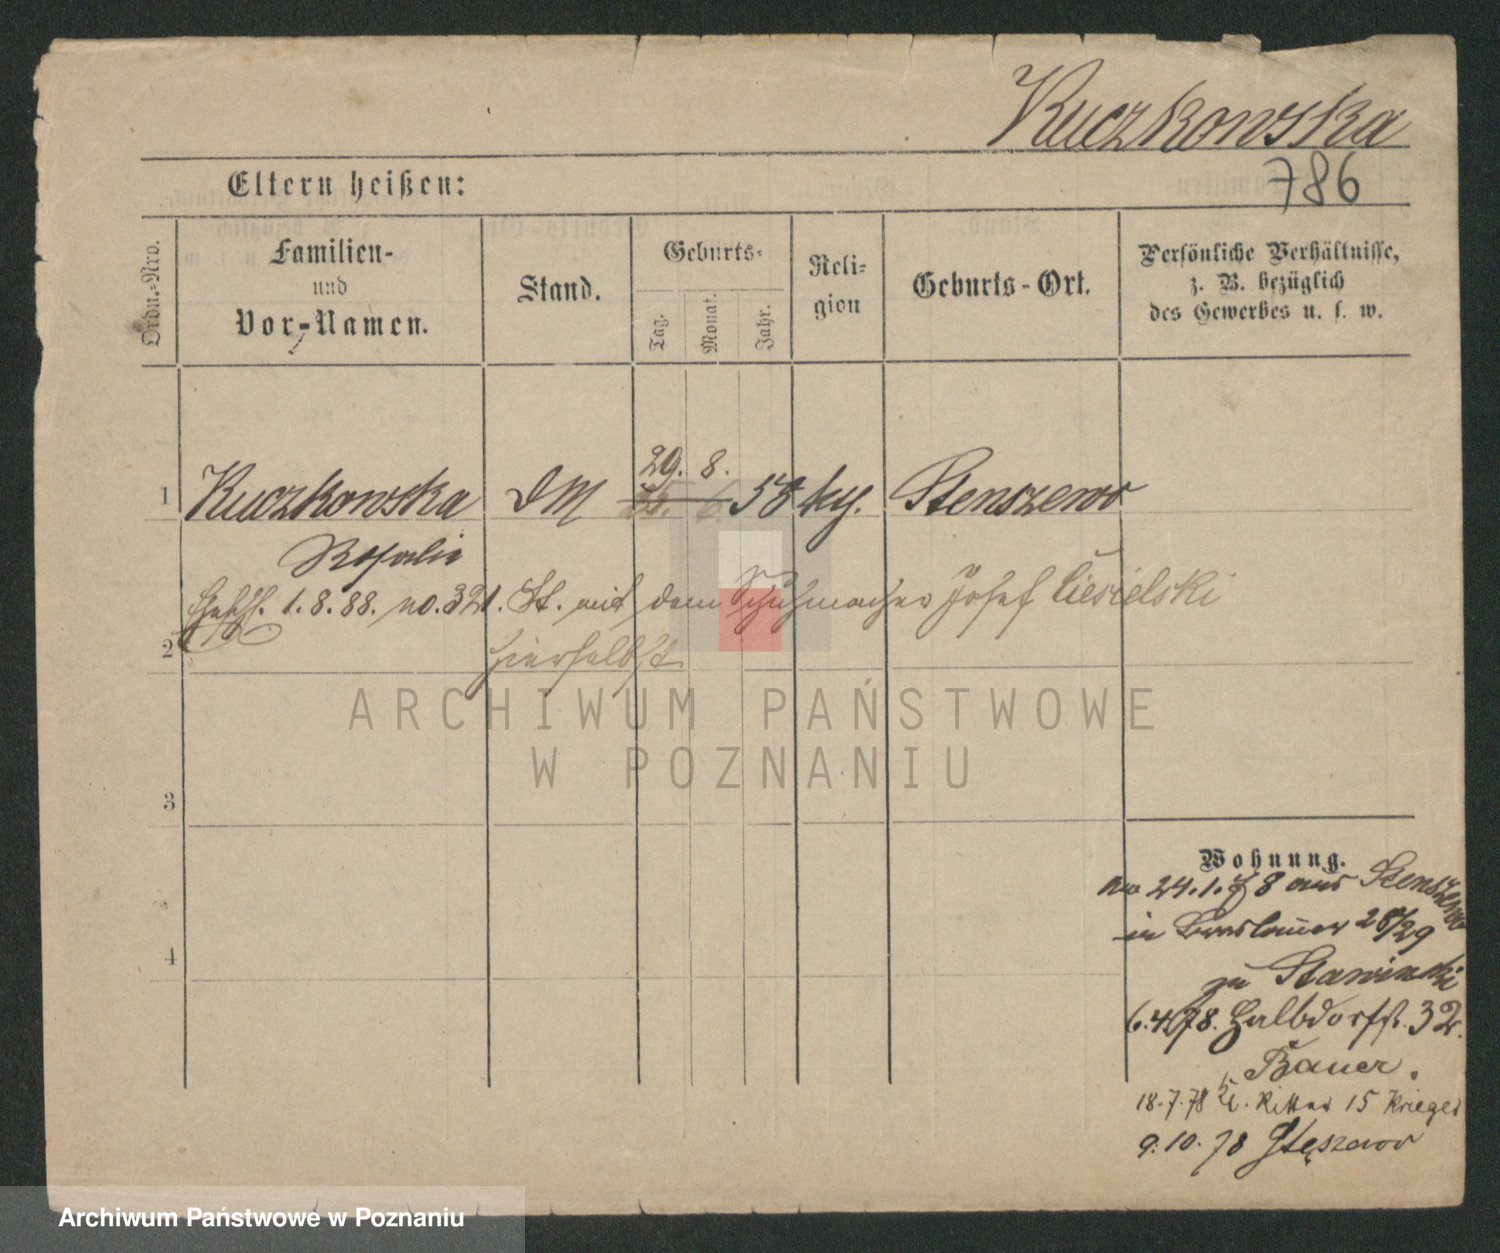 Kuczkowska
786
Eltern heißen:
Ordn.-Nro.
Familien-
und
Vor-Namen.
Stand.
Geburts-
Tag.
Monat.
Jahr.
Reli-
gion
Geburts-Ort.
Persönliche Verhältnisse,
z. B. bezüglich
des Gewerbes u. s. w.
29. 8.
1 Kuczkowska DM 6. 58 kg. Stenszewo
Rosalie
1.8.88. no. 321. St. mit dem Schuhmacher Josef Ciesielski
2 hierselbst
3
4
ARCHIWUM PAŃSTWOWE
W POZNANIU
Wohnung.
24.1.78 aus Stenszewo
in Breslauer 28/29
zu Stawinski
6.4.78. Halbdorfst. 32.
Bauer.
18.7.78 Kl. Ritter 15 Krieger
9.10.78 Stęszewo
Archiwum Państwowe w Poznaniu